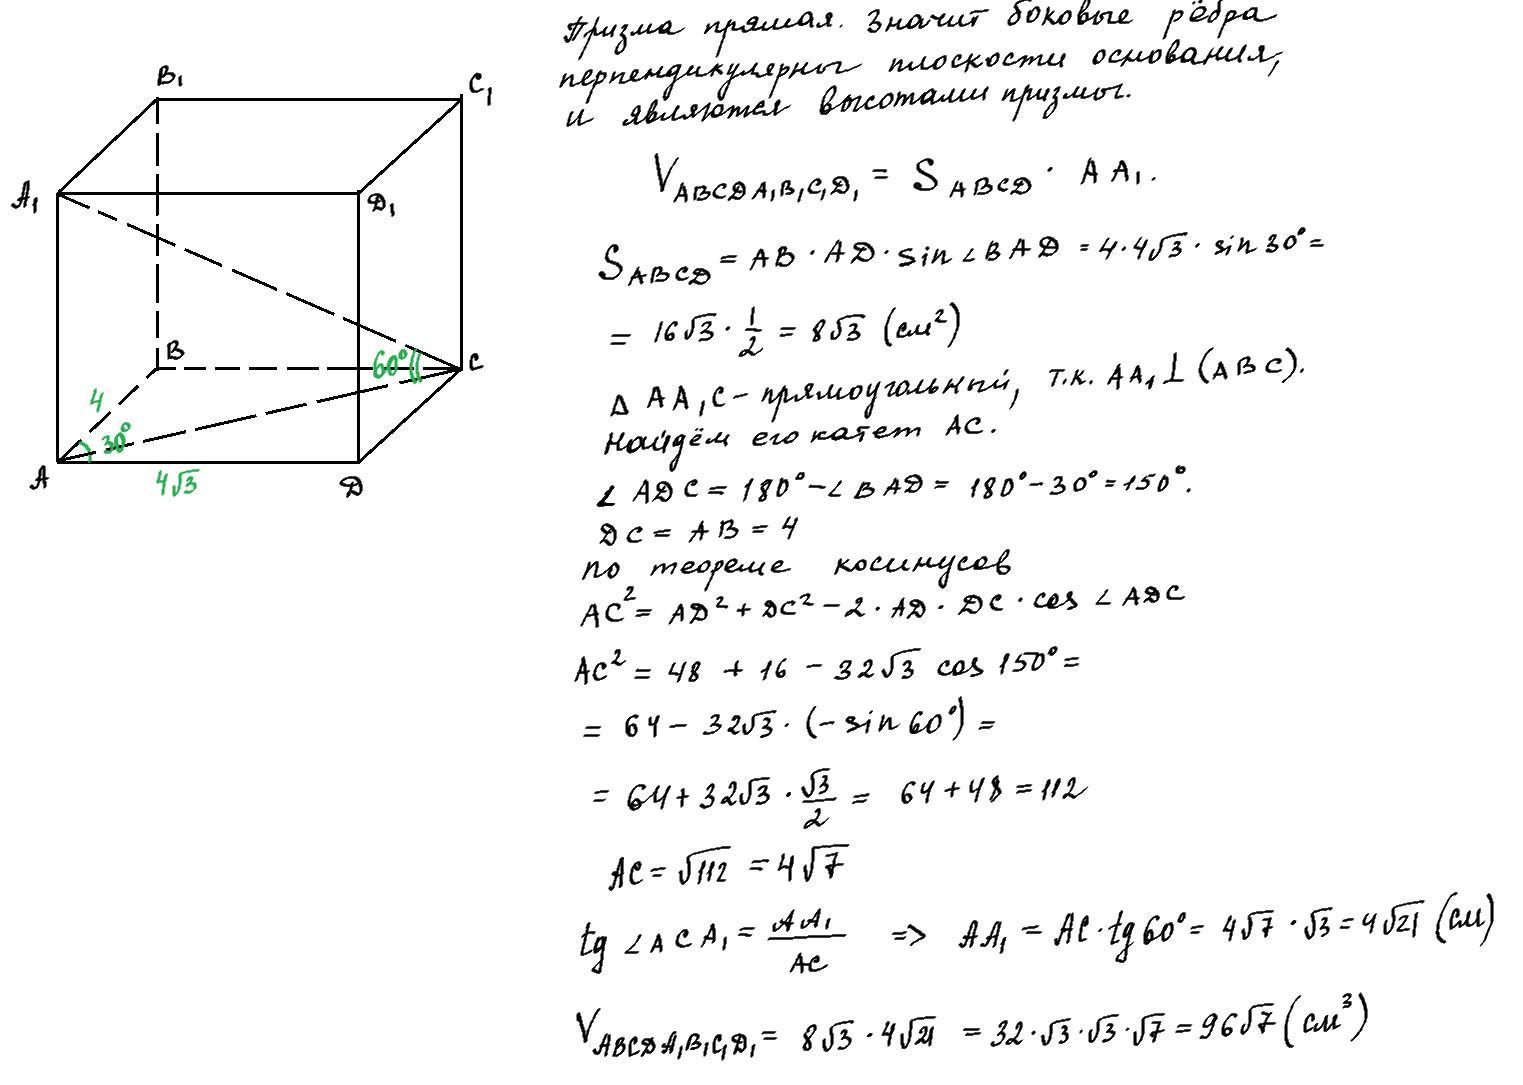 Призма прямая. Значит боковые рёбра
перпендикулярны плоскости основания,
и являются высотами призмы.
V_{ABCDA₁B₁C₁D₁} = S_{ABCD} · AA₁.
S_{ABCD} = AB · AD · sin ∠BAD = 4 · 4√3 · sin 30° =
= 16√3 · 1/2 = 8√3 (см²)
Δ AA₁C – прямоугольный, т.к. AA₁ ⊥ (ABC).
Найдём его катет AC.
∠ ADC = 180° – ∠BAD = 180° – 30° = 150°.
DC = AB = 4
по теореме косинусов
AC² = AD² + DC² – 2 · AD · DC · cos ∠ADC
AC² = 48 + 16 – 32√3 cos 150° =
= 64 – 32√3 · (– sin 60°) =
= 64 + 32√3 · √3/2 = 64 + 48 = 112
AC = √112 = 4√7
tg ∠ACA₁ = AA₁/AC => AA₁ = AC · tg 60° = 4√7 · √3 = 4√21 (см)
V_{ABCDA₁B₁C₁D₁} = 8√3 · 4√21 = 32 · √3 · √3 · √7 = 96√7 (см³)
B₁
C₁
A₁
D₁
B
60°
C
4
30°
A
4√3
D